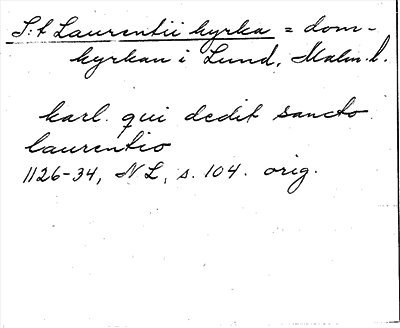 S:t Laurentii kyrka = dom-
kyrkan i Lund, Malm. l.
karl. qui dedit sancto
laurentio
1126-34, NL, s. 104. orig.